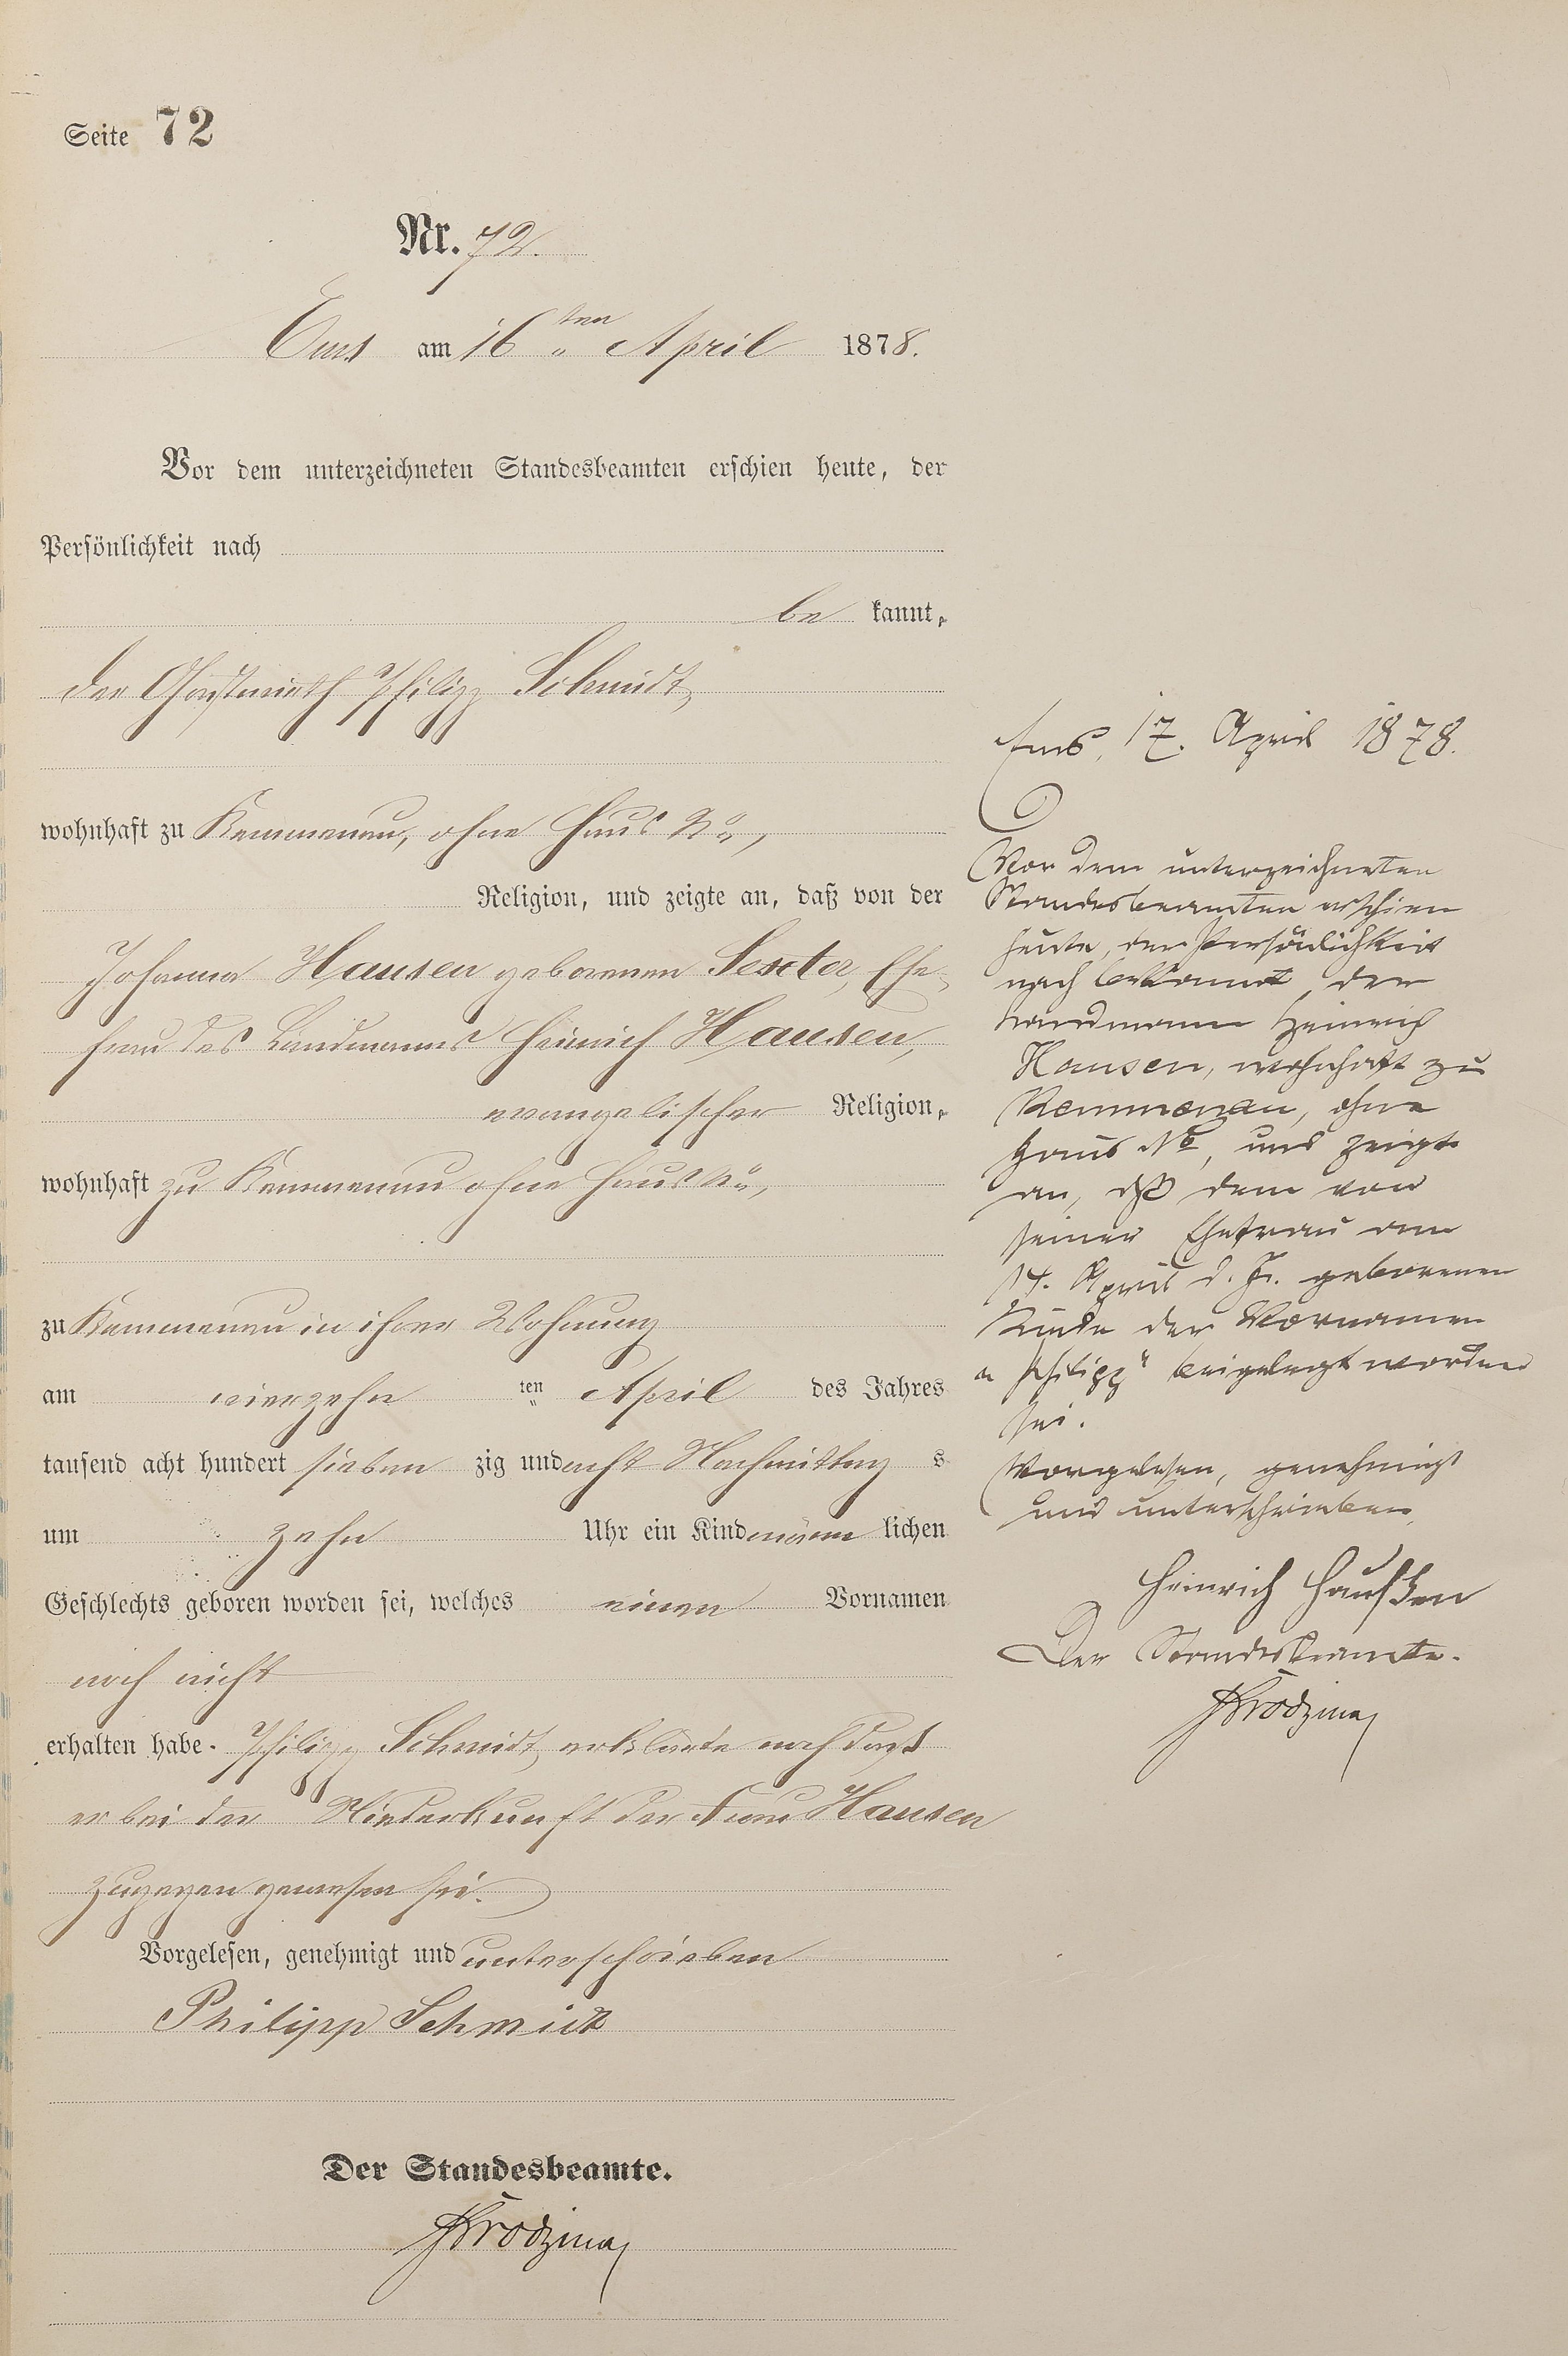 Seite 72
Nr. 72.
Ems am 16ten April 1878.
Vor dem unterzeichneten Standesbeamten erschien heute, der
Persönlichkeit nach
be kannt,
der Gastwirth Philipp Schmidt,
wohnhaft zu Kemmenau, ohne Haus No,
Religion, und zeigte an, daß von der
Johanna Hausen geborenen Sexter, Ehe-
frau des Landmanns Heinrich Hausen,
evangelischer Religion,
wohnhaft zu Kemmenau ohne Haus No,
zu Kemmenau in ihrer Wohnung
am vierzehn ten April des Jahres
tausend acht hundert sieben zig und acht Nachmittag s
um zehn Uhr ein Kind männ lichen
Geschlechts geboren worden sei, welches einen Vornamen
noch nicht
erhalten habe. Philipp Schmidt, erklärte noch daß
er bei der Niederkunft der Frau Hausen
zugegen gewesen sei.
Vorgelesen, genehmigt und unterschrieben
Philipp Schmidt
Der Standesbeamte.
Ems, 17. April 1878.
Vor dem unterzeichneten
Standesbeamten erschien
heute, der Persönlichkeit
nach bekannt, der
Landmann Heinrich
Hausen, wohnhaft zu
Kemmenau, ohne
Haus No, und zeigte
an, daß dem von
seiner Ehefrau am
14. April d. Js. geborenen
Kinde der Vornamen
"Philipp" beigelegt worden
sei.
Vorgelesen, genehmigt
und unterschrieben,
Heinrich Haußen
Der Standesbeamte.